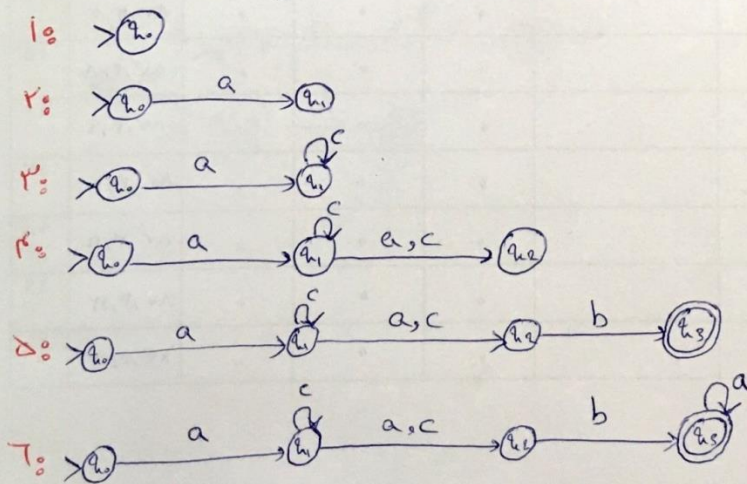 ۱: q₀
۲: q₀ a q₁
۳: q₀ a q₁ c
۴: q₀ a q₁ c a,c q₂
۵: q₀ a q₁ c a,c q₂ b q₃
۶: q₀ a q₁ c a,c q₂ b q₃ a